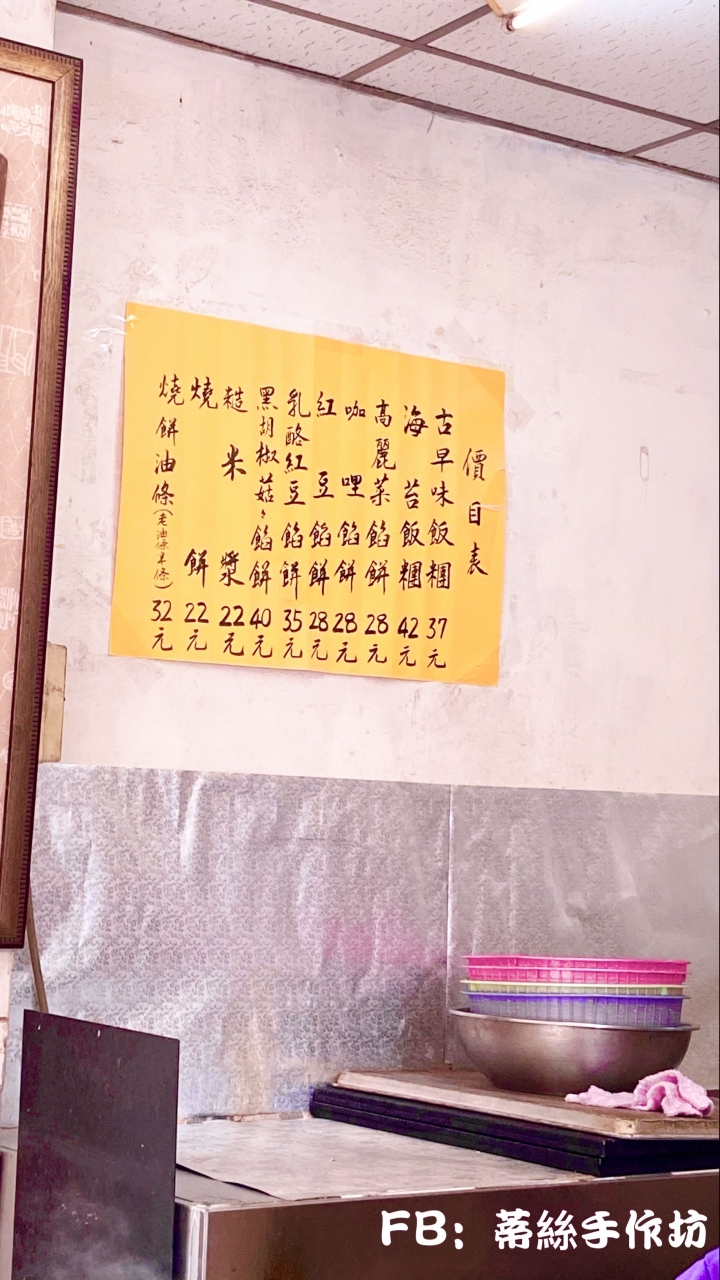 價目表
古早味飯糰37元
海苔飯糰42元
高麗菜餡餅28元
咖哩餡餅28元
紅豆餡餅28元
乳酪紅豆餡餅35元
黑胡椒菇々餡餅40元
糙米漿22元
燒餅22元
燒餅油條(老油條半條)32元
FB：蒂絲手作坊